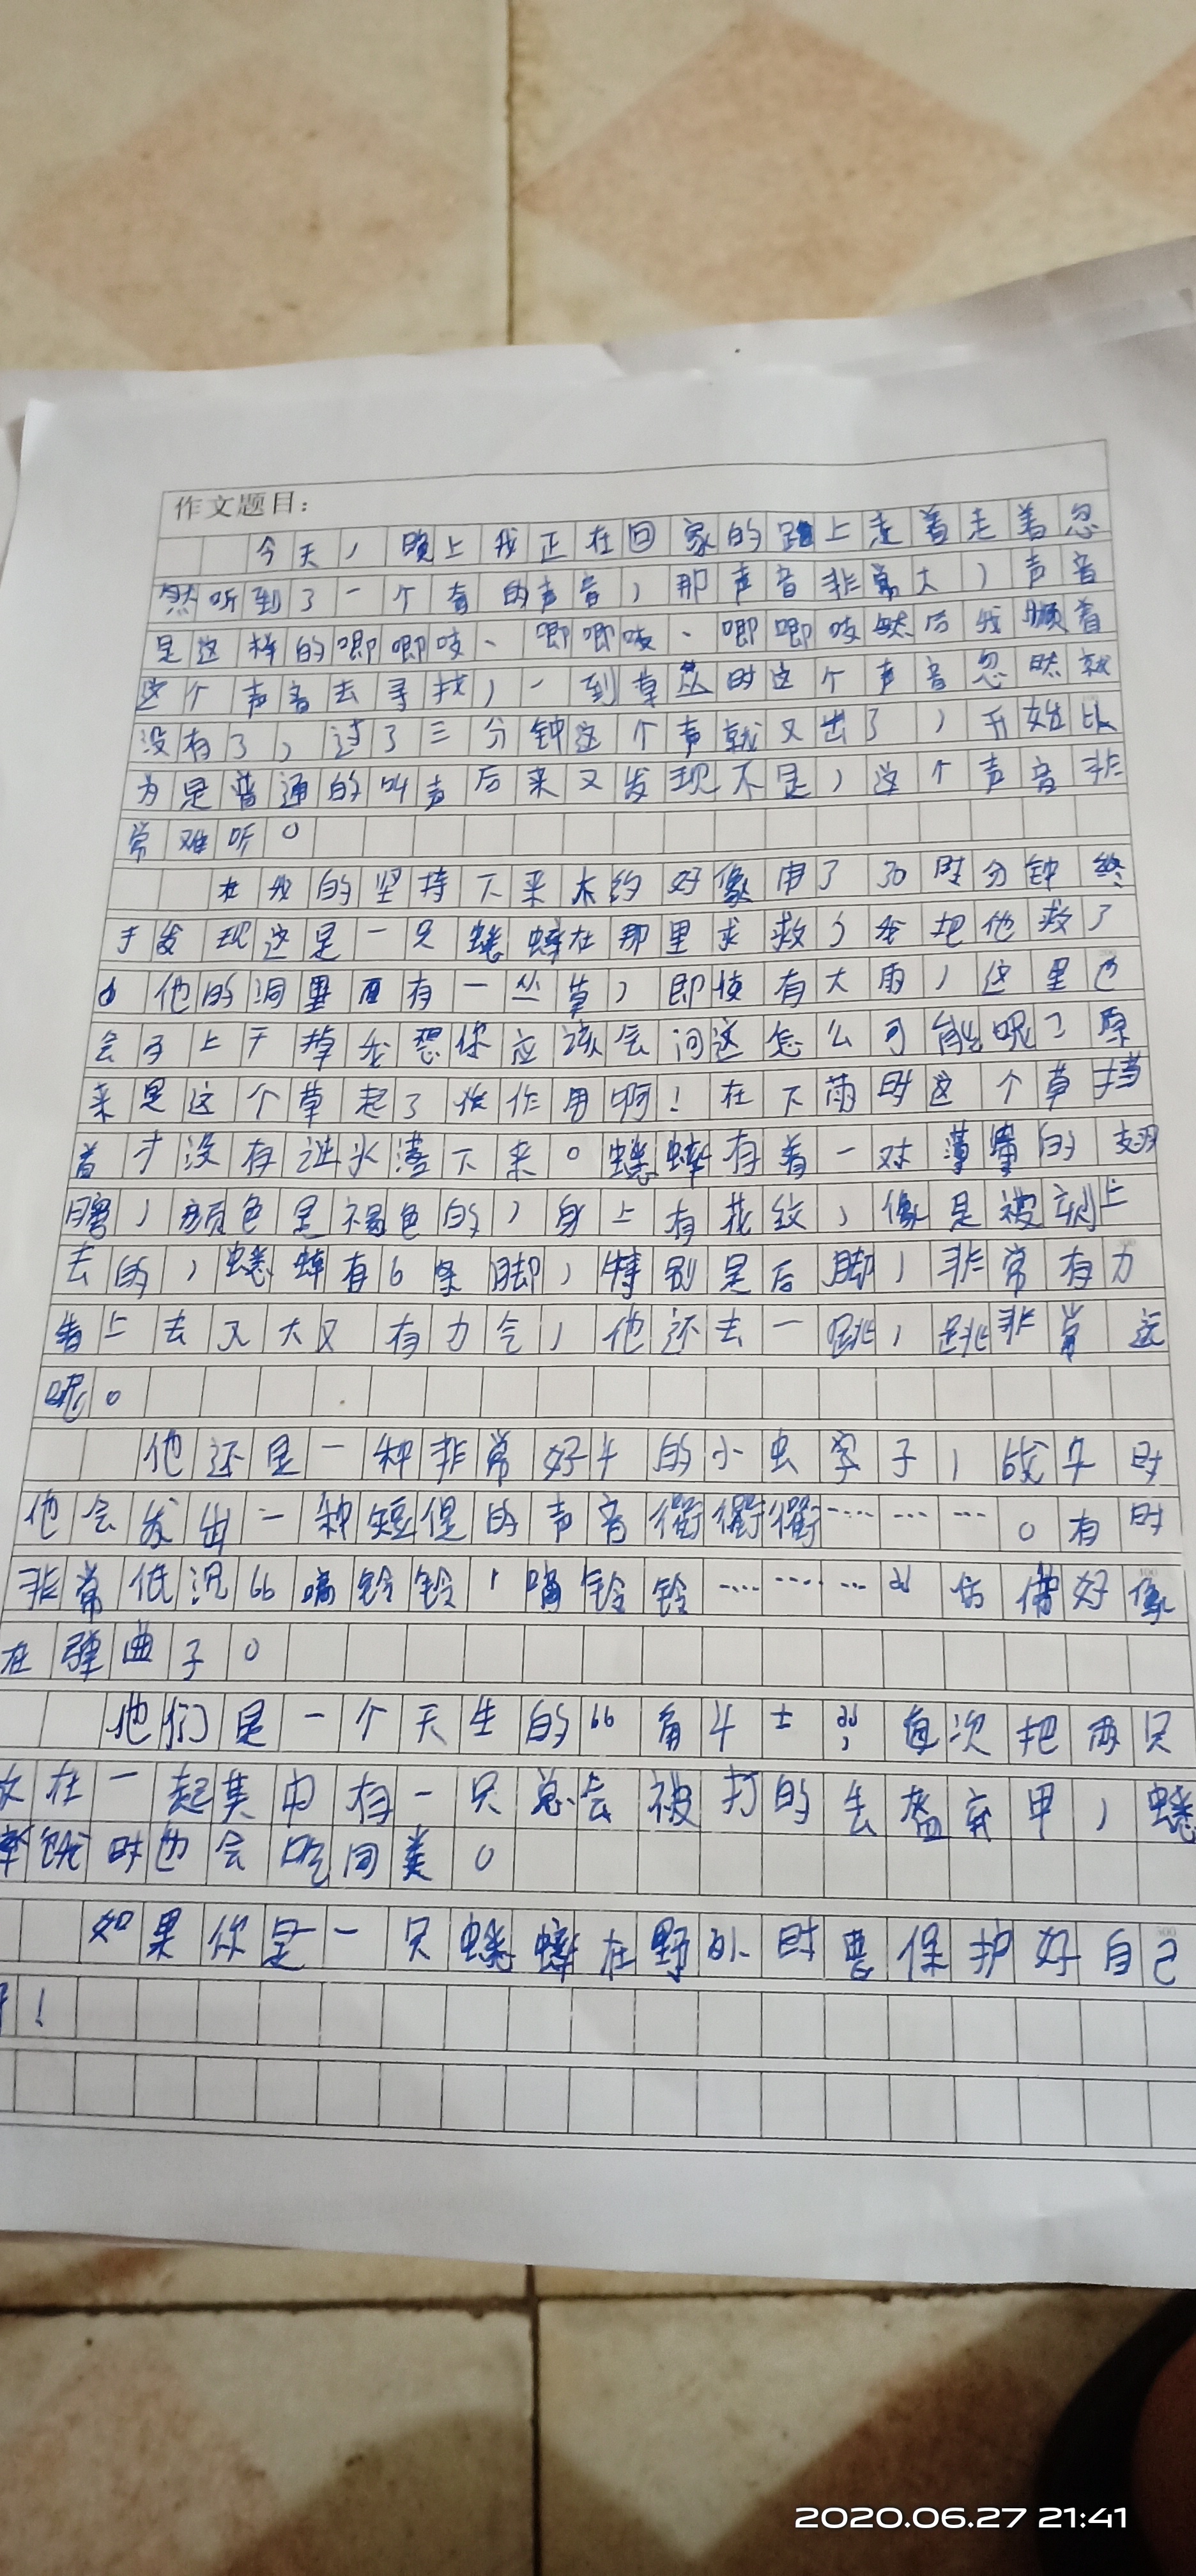 作文题目：
今天，晚上我正在回家的路上走着走着忽
然听到了一个有的声音，那声音非常大，声音
是这样的唧唧吱、唧唧吱、唧唧吱然后我顺着
这个声音去寻找，一到草丛时这个声音忽然就
没有了，过了三分钟这个声就又出了，开始以
为是普通的叫声后来又发现不是，这个声音非
常难听。
在我的坚持下来大约好像用了30时分钟终
于发现这是一只蟋蟀在那里求救，我把他救了
。他的洞里面有一丛草，即使有大雨，这里也
会马上干掉我想你应该会问这怎么可能呢？原
来是这个草起了做作用啊！在下雨时这个草挡
着才没有让水落下来。蟋蟀有着一对薄薄的翅
膀，颜色是褐色的，身上有花纹，像是被刻上
去的，蟋蟀有6条脚，特别是后脚，非常有力
看上去又大又有力气，他还去一跳，跳非常远
呢。
他还是一种非常好斗的小虫字子，战斗时
他会发出一种短促的声音衢衢衢………。有时
非常低沉“嘀铃铃，嘀铃铃………”仿佛好像
在弹曲子。
他们是一个天生的“角斗士”，每次把两只
放在一起其中有一只总会被打的丢盔弃甲，蟋
蟀饿时也会吃同类。
如果你是一只蟋蟀在野外时要保护好自己
！
2020.06.27 21:41